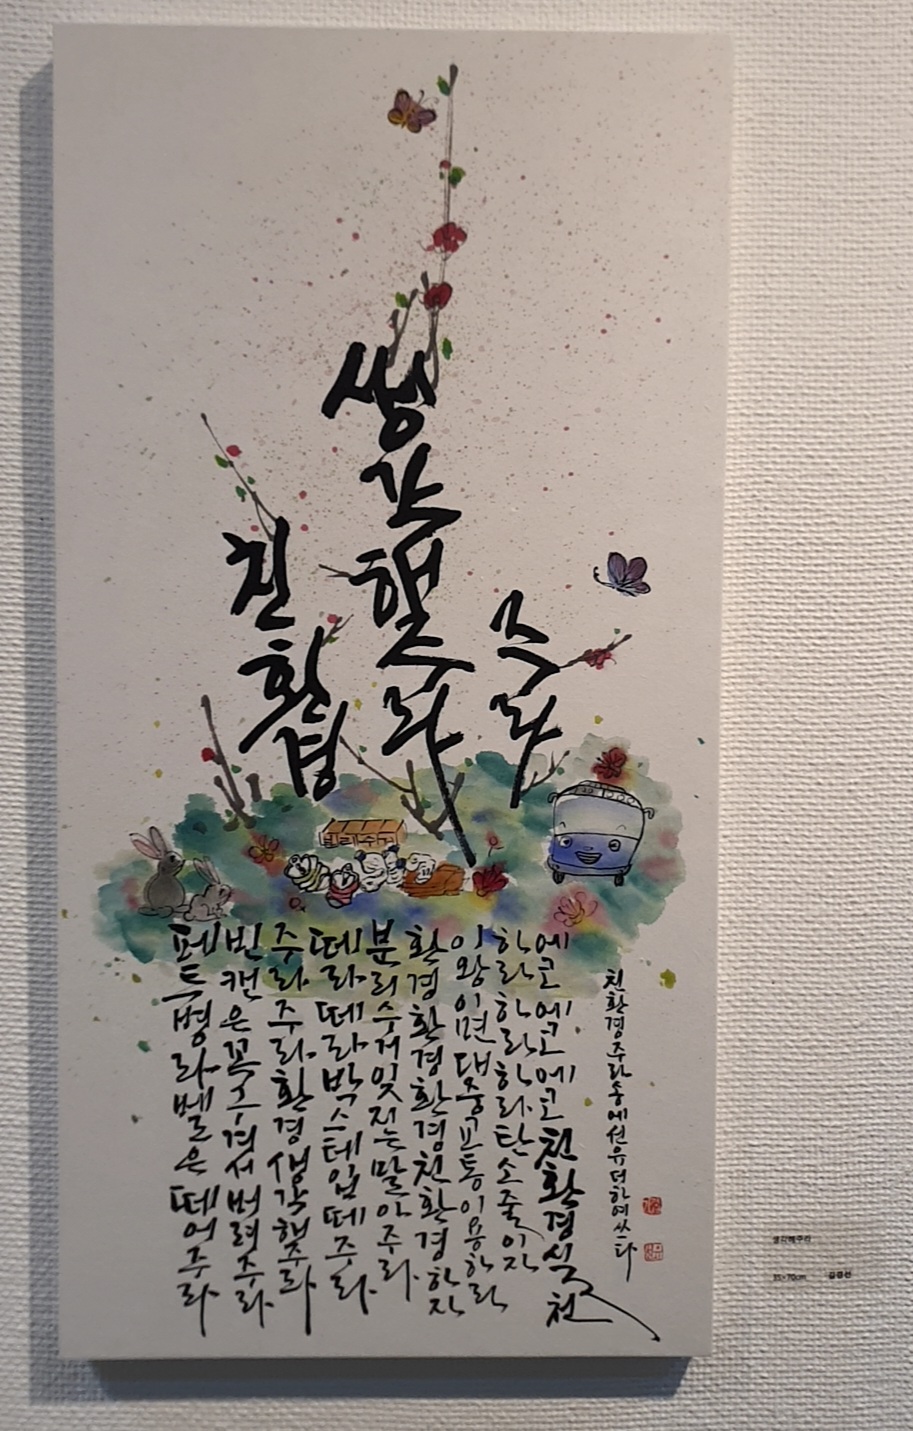 친환경
생각해주라
주라
분리수거
친환경주라송에선유더하여쓰다
에코에코에코친환경실천
하라하라하라탄소줄이자
이왕이면대중교통이용하라
환경환경환경친환경하자
분리수거잊지는말아주라.
떼라떼라박스테입떼주라.
주라.주라.환경생각해주라
빈캔은꼭구겨서버려주라
페트병라벨은떼어주라
생각해주라
35×70cm